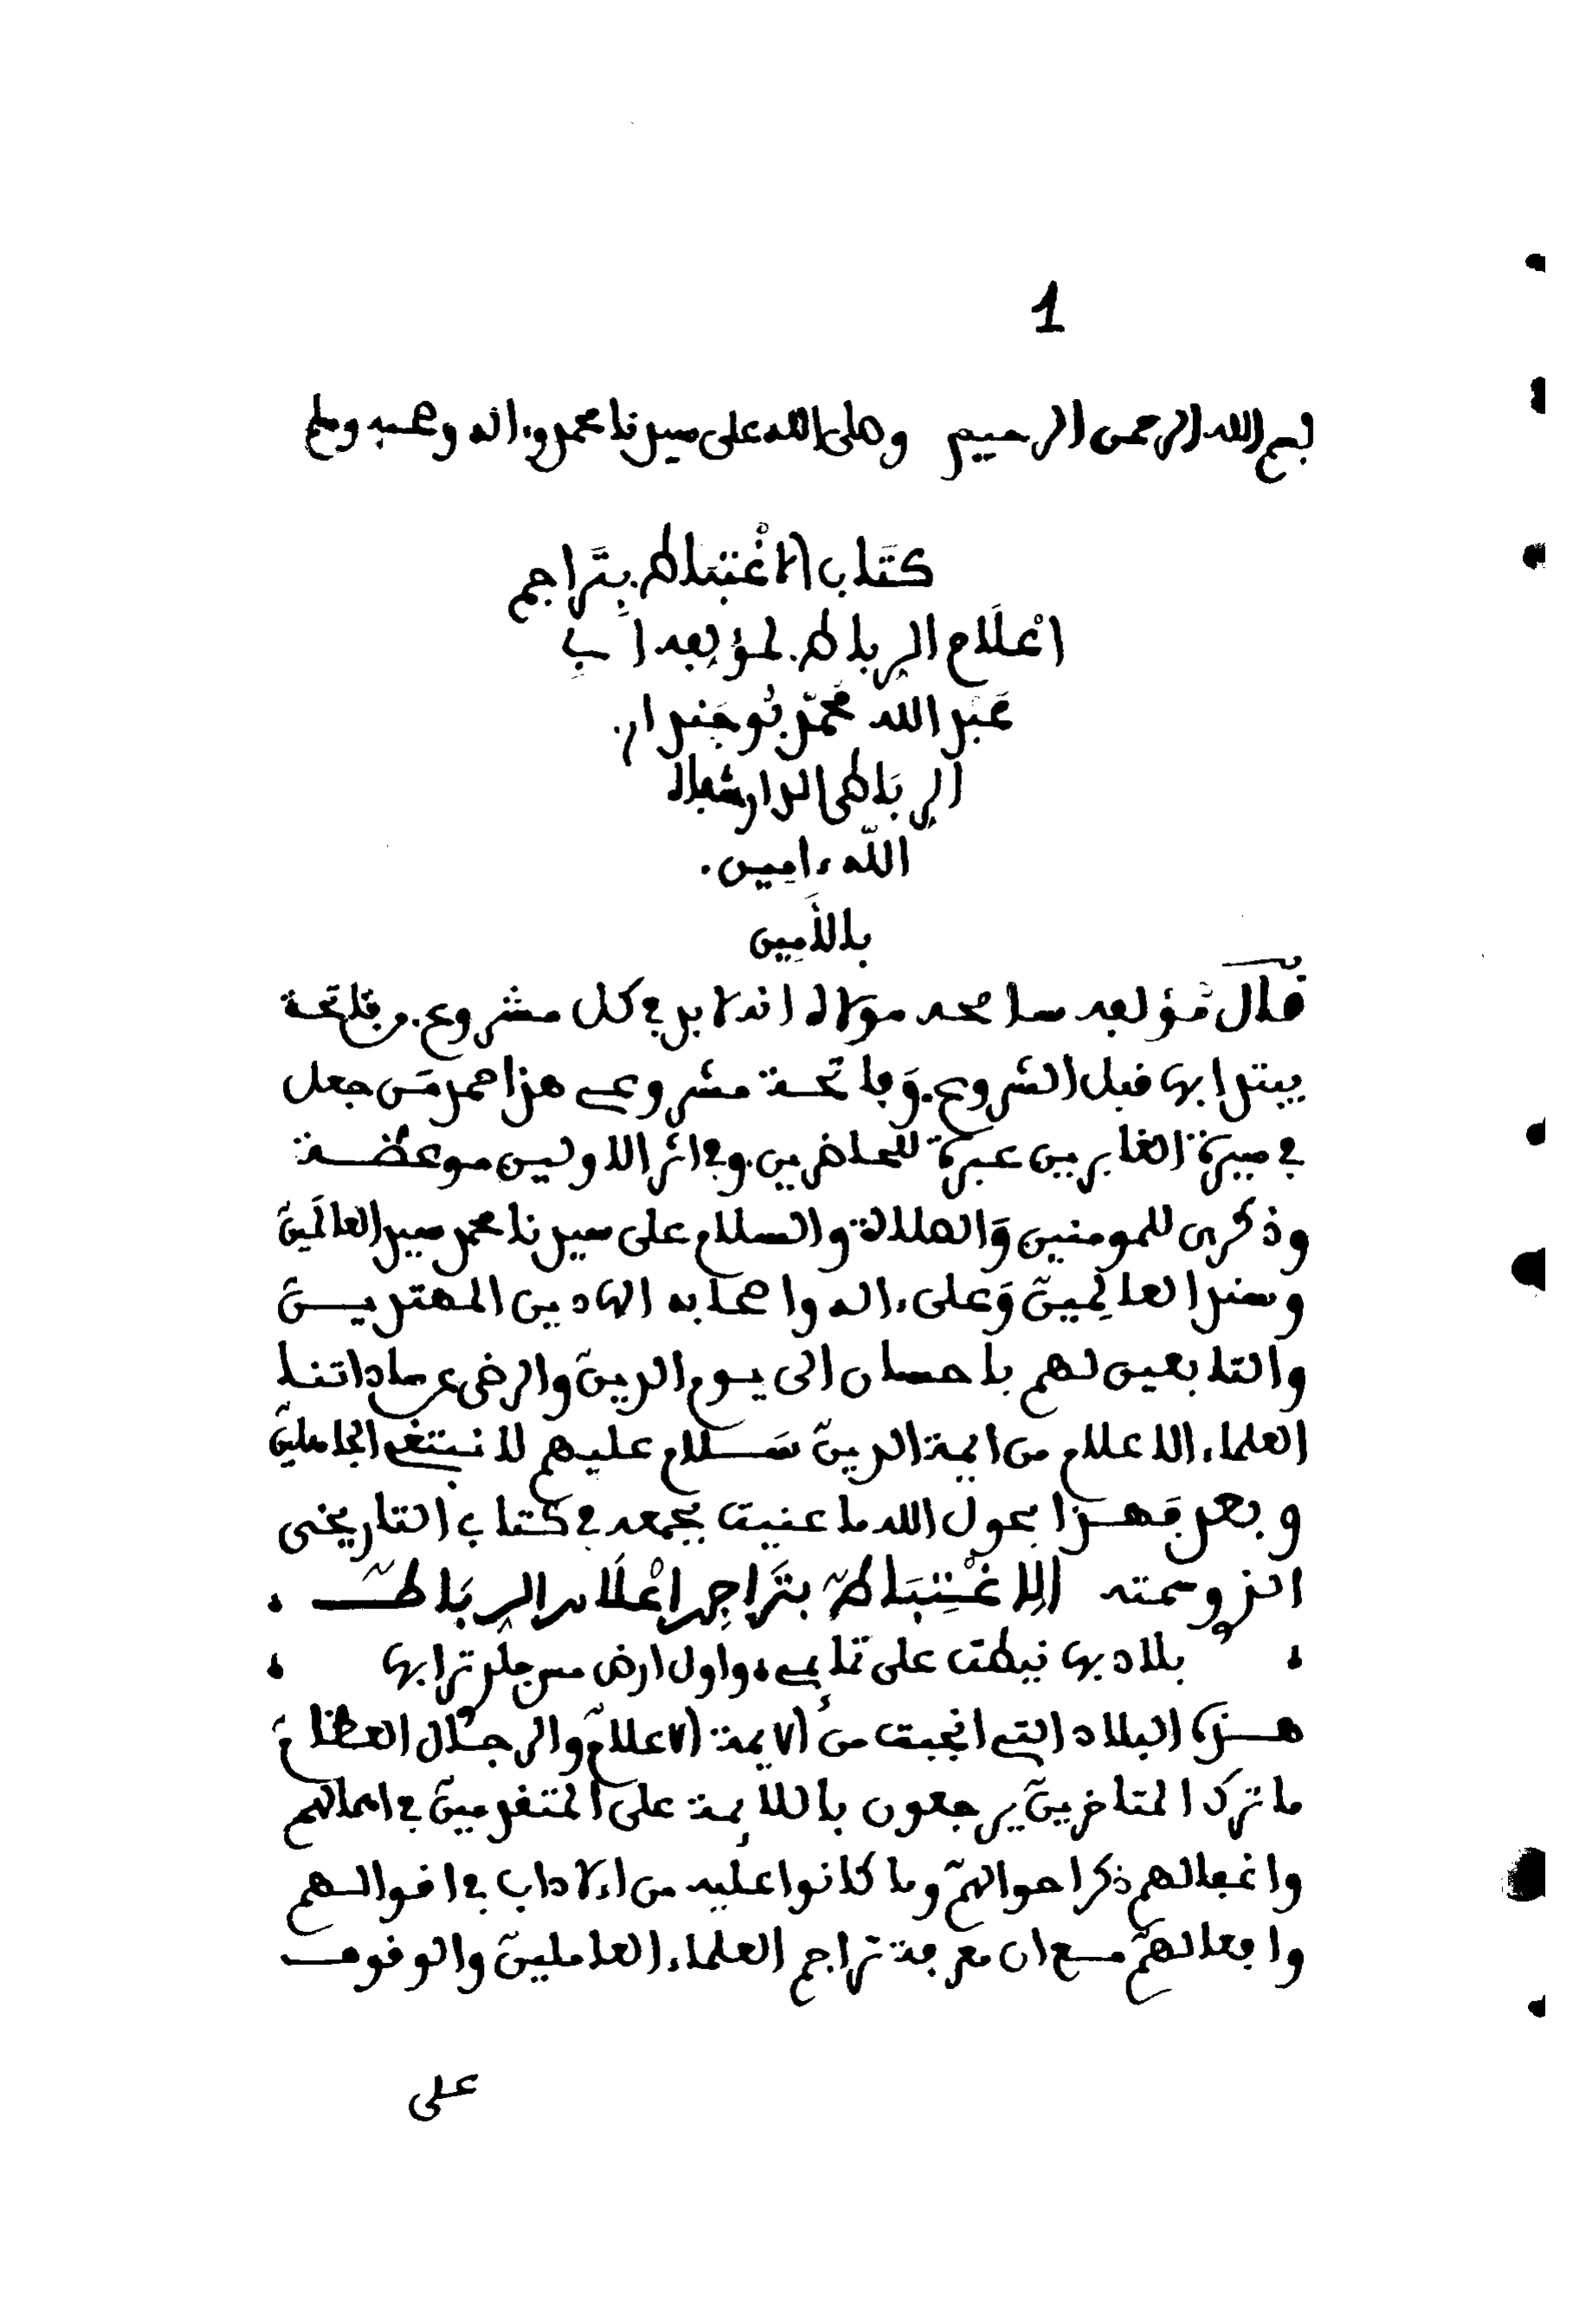 1
بسم الله الرحمن الرحيم وصلى الله على سيدنا محمد وءاله وصحبه وسلم
كتَاب الاغْتبَاط بِتَراجم
اعْلَام الرباط لمؤلفه ابِي
عَبْد الله محَمّد بُوجَندار
الرِبَاطى الدار شفاه
اللّه ءامِين
بالأَمِين
قال مُؤلفه سامحه مولاه انه لابد في كل مشروع من فاتحة
يبتدا بها قبل الشروع وَفاتحة مشروعي هذا حمد مَن جعل
في سيرة الغابرين عبرة للحاضرين وفي اثر الاولين موعظة
وذكرى للمومنين وَالصلاة والسلام على سيدنا محمد سيد العالَمين
وسند العالِمين وَعلى ءاله واصحابه الهادين المهتدين
والتابعين لهم باحسان الى يوم الدين والرضى عن ساداتنا
العلماء الاعلام من ايمة الدين سَلام عليهم لا نبتغي الجاهلين
وبعد فَهذا بحول الله ما عنيت بجمعه في كتاب التاريخى
الذي وسمته الاغْتِبَاط بتَرَاجِم اعْلَام الرِبَاط
بلاد بها نيطت على تمايمي واول ارض مس جلدي ترابها
هذه البلاد التي انجبت من الايمة الاعلام والرجال العظام
ما ترك المتاخرين يرجعون باللايمة على المتقدمين في اهمالهم
واغفالهم ذكر احوالهم وما كانوا عليه من الاداب في اقوالهم
وافعالهم مع ان معرفة تراجم العلماء العاملين والوقوف
على